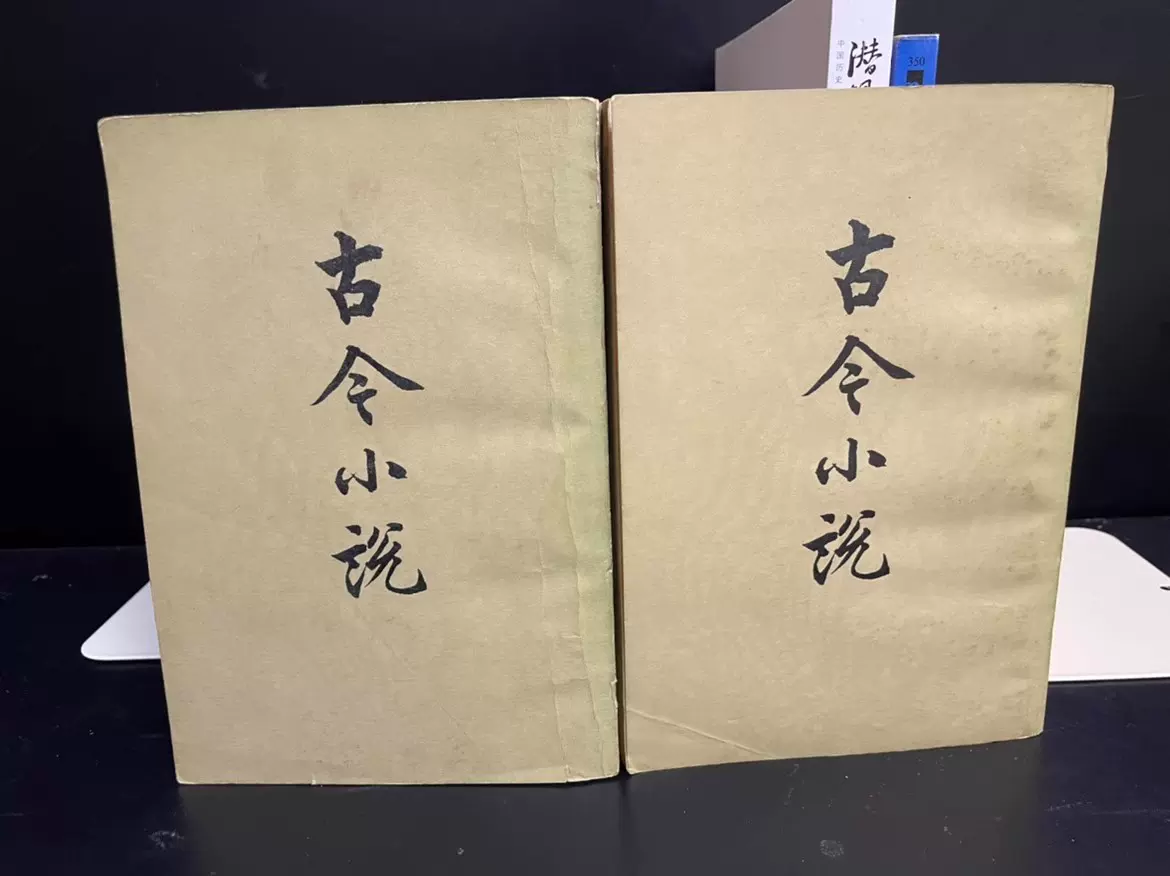 古今小说
古今小说
中国历史
潜
350